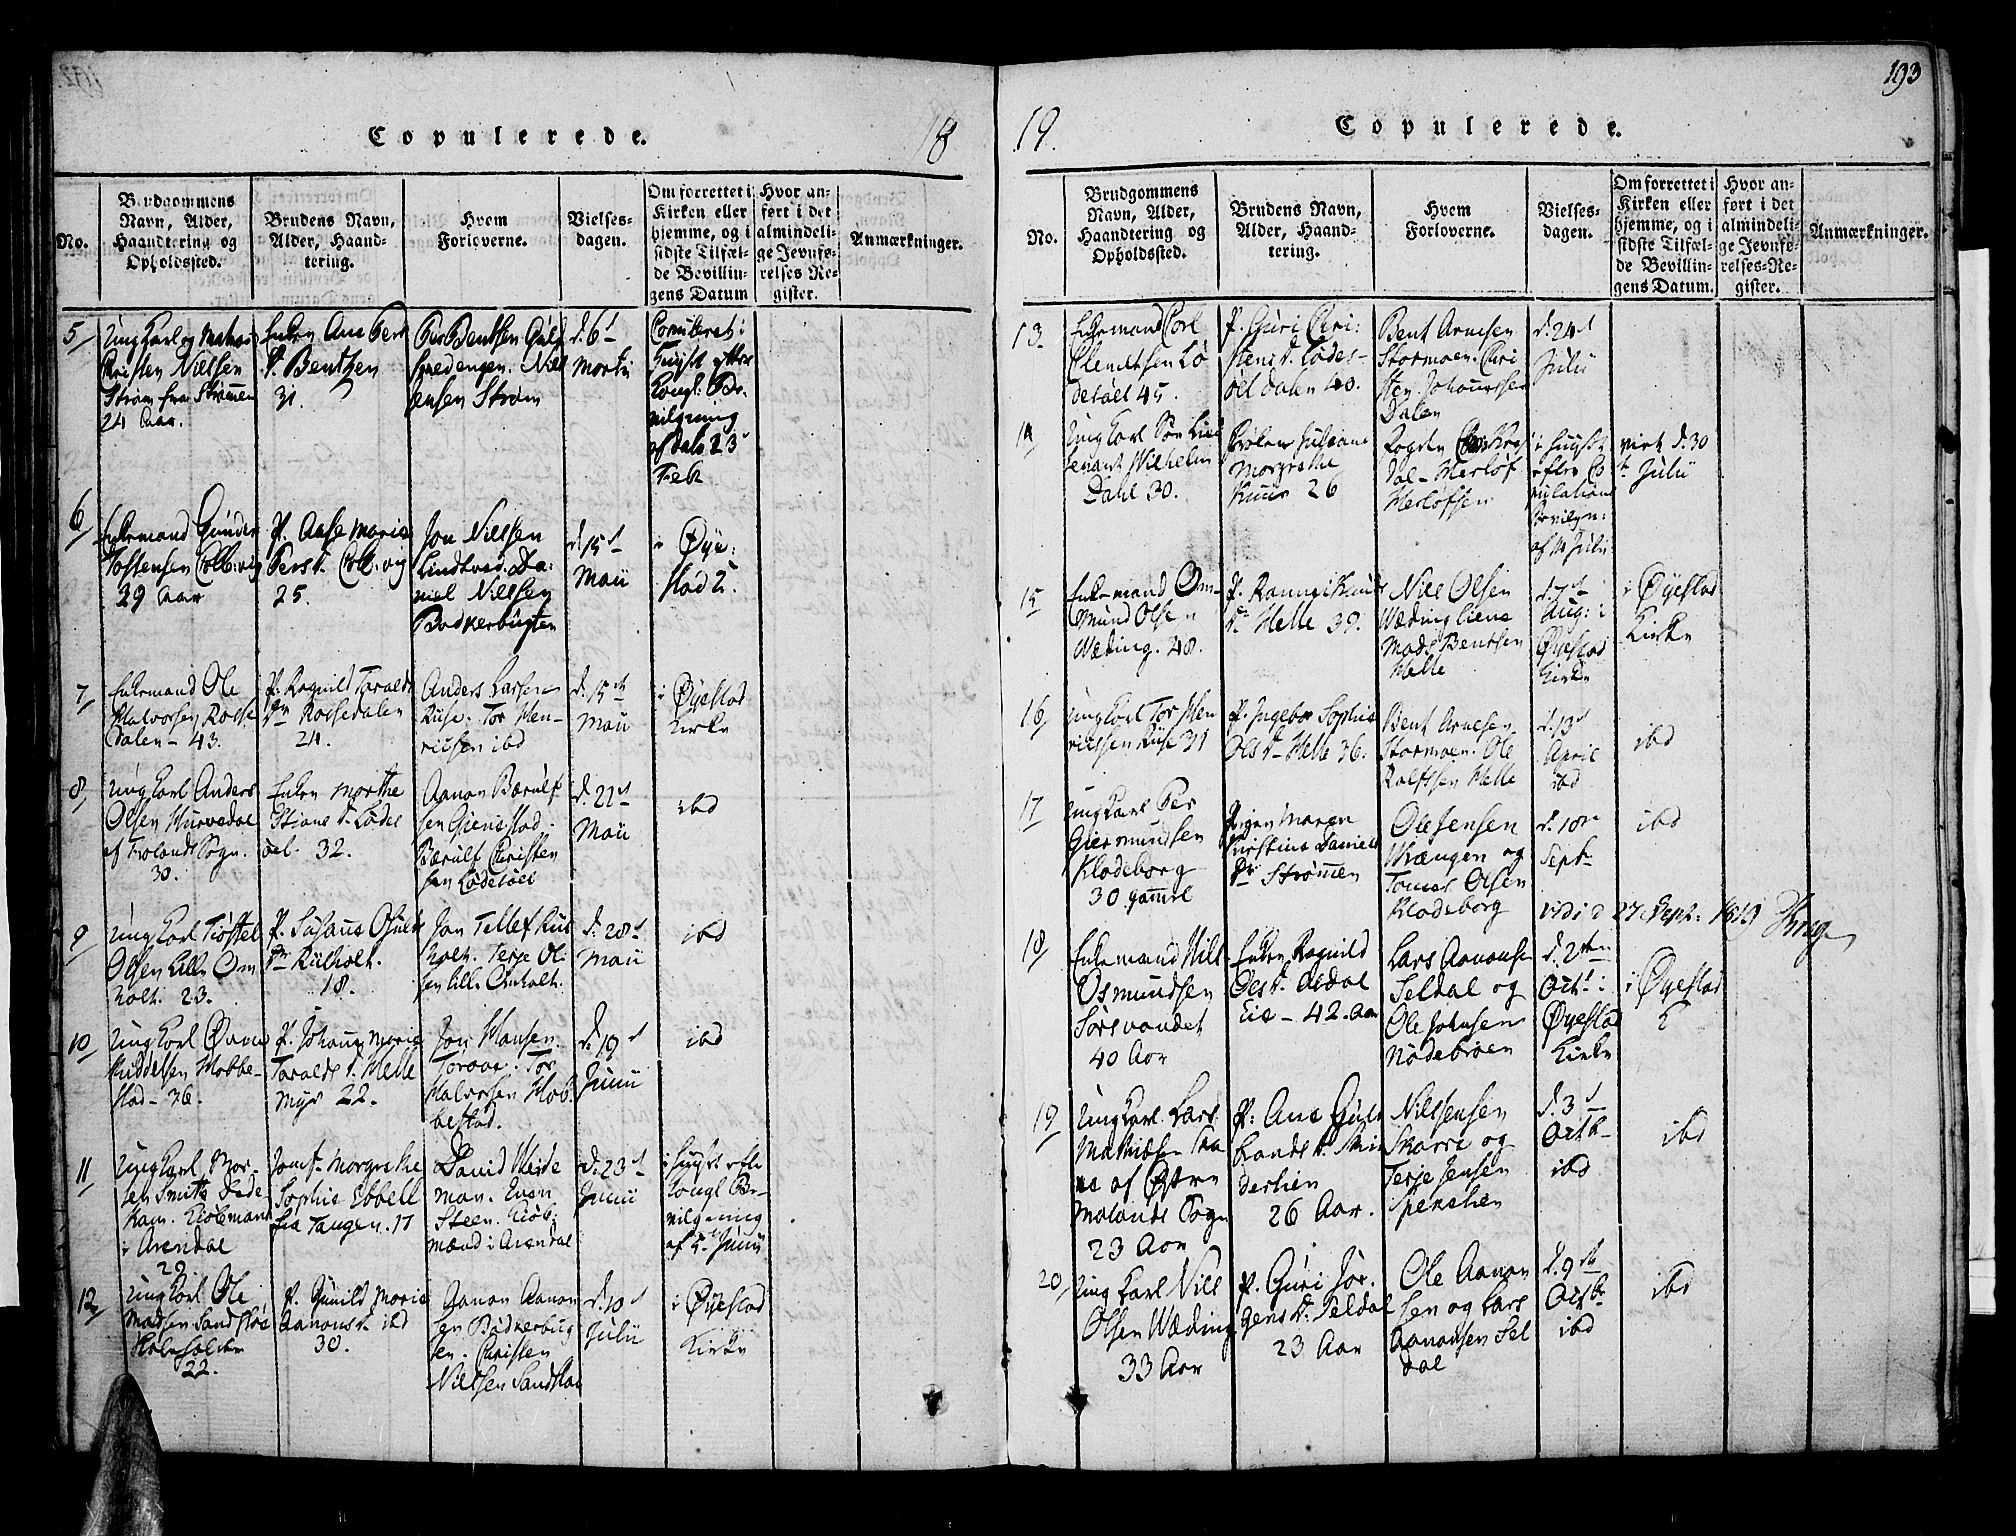 193
Copulerede.
18
No.
Brudgommens
Navn, Alder,
Haandtering og
Opholdssted.
Brudens Navn,
Alder, Haand-
tering.
Hvem
Forloverne.
Vielses-
dagen.
Om forrettet i
Kirken eller
hjemme, og i
sidste Tilfæl-
de Bevillin-
gens Datum
Hvor an-
ført i det
almindeli-
ge Jevnfø-
relses-Re-
gister.
Anmærkninger.
5
Ung Karl og
Christen Nielsen
Strøm fra Strømmen
24 Aar.
Enken Ane Pers
d. Bentzen
31.
Per Bentsen
Niels
Jensen Strøm
d. 6t
Martii
Copuleret i
Huuset efter
Kongl. Be-
vilgning
af Dato 23
Feb
6
Enkemand Gunder
Tostensen
29 Aar
P. Aase Marie
Pers d.
25.
Jon Nielsen
Lindtved. Da-
niel Nielsen
Bødkerbugten
d. 15t
Maii
i Øye-
stad K.
7
Enkemand Ole
Halvorsen Rosse
Dalen - 43.
P. Ragnild Taralds
Dr Rossedalen
24.
Anders Larsen
Ruse. Tor Hen-
ricsen ibd
d. 15de
Maii
i Øyestad
Kirke
8
Ung Karl Anders
Olsen
af Froland Sogn.
30.
Enken Marthe
Stians d. Lødes
øel. 32.
Aanon Bærulf
sen Gienestad.
Bærulf Christen
sen Lødesøel
d. 22t
Maii
ibd
9
Ung Karl Tiøstel
Olsen Lille Om
holt. 23.
P. Susanne
Dr Rülholt.
18.
Jon Tellefsen
holt. Terje Ol
sen Lille Omholt.
d. 28t
Maii
ibd
10
Ung Karl
Kiddelsen Hobbe-
stad - 36.
P. Johanne Marie
Taralds d. Helle
myr 22.
Jon Hansen
Tor
Halvorsen Hob
bestad.
d. 19t
Junii
ibd
11
Ung Karl Mor-
ten Smitth
Kam. Kiøbmand
i Arendal
29
Jomf. Margrethe
Sophie Ebbell
fra Tangen. 17
David Weide
man. Even
Steen. Kiøb-
mænd i Arendal
d. 23t
Junii
i Huuset efter
Kongl. Be-
vilgning
af 4. Junii
12
Ung Karl Ole
Madsen Sandstøe
22.
P. Gunild Marie
Aanons d. ibd
30.
Aanon Aanon
sen Bødkerbug
ten. Christen
Nielsen Sandstøe
d. 10t
Julii
i Øyestad
Kirke
19.
Copulerede.
No.
Brudgommens
Navn, Alder,
Haandtering og
Opholdssted.
Brudens Navn,
Alder, Haand-
tering.
Hvem
Forloverne.
Vielses-
dagen.
Om forrettet i
Kirken eller
hjemme, og i
sidste Tilfæl-
de Bevillin-
gens Datum.
Hvor an-
ført i det
almindeli-
ge Jevnfø-
relses-Re-
gister.
Anmærkninger.
13
Enkemand Carl
Clemetsen Lø
desøel 45.
P. Guri Chri-
stens d. Lødes-
øel dalen 40.
Bent Arnesen
Stormoen. Chri
sten Johannessen
Dalen
d. 24t
Julii
14
Ung Karl Søe Lieu
tenant Wilhelm
Dahl 30.
Frøken Juliane
Margrethe
26
Herlof
Herlofsen
i Huuset
efter Co
pulations
bevilgn:
af 14 Julii
viet d. 30
te Julii
15
Enkemand Om-
mund Olsen
Wæding. 48.
P.
Dr Helle 39.
Niels Olsen
Wæding
Mads Bentsen
Helle
d. 7t
Aug: i
Øyestad
Kirke
i Øyestad
Kirke
16
Ung Karl Tor Hen
ricssen Ruse 31
P. Ingebor Sophie
Ols d. Helle 36.
Bent Arnesen
Stormoen. Ole
Rolfssen Helle
d. 13t
April
ibd
ibd
17
Ung Karl Per
Giermundsen
Klodeborg
30 gammel
Pigen Maren
Kirstine Daniels
Dr Strømmen
Ole Jensen
Wrængen og
Tomas Olsen
Klodeborg
d. 10de
Sept
ibd
vidi d 27 Sept. 1819 Krog
18
Enkemand Nils
Osmundsen
Sørsvandet
40 Aar
Enken Ragnild
Ols d.
Eie - 42 Aar
Lars Aanonse
Seldal og
Ole Johnsen
Nødebroen
d. 2den
Octb. i
Øyestad
Kirke
i Øyestad
K
19
Ung Karl Lars
Mathissen
af Østre
Molands Sogn
23 Aar
P. Ane Gun
26 Aar.
Nils Jensen
Skarre og
Terje Jensen
d. 3t
Octb.
ibd
ibd
20
Ung Karl Nils
Olsen Wæding
33 Aar
P. Guri Jør-
gens D. Seldal
23 Aar
Ole Aanon
sen og Lars
Aanonsen Sel
dal
d. 9de
Octb.
ibd
ibd